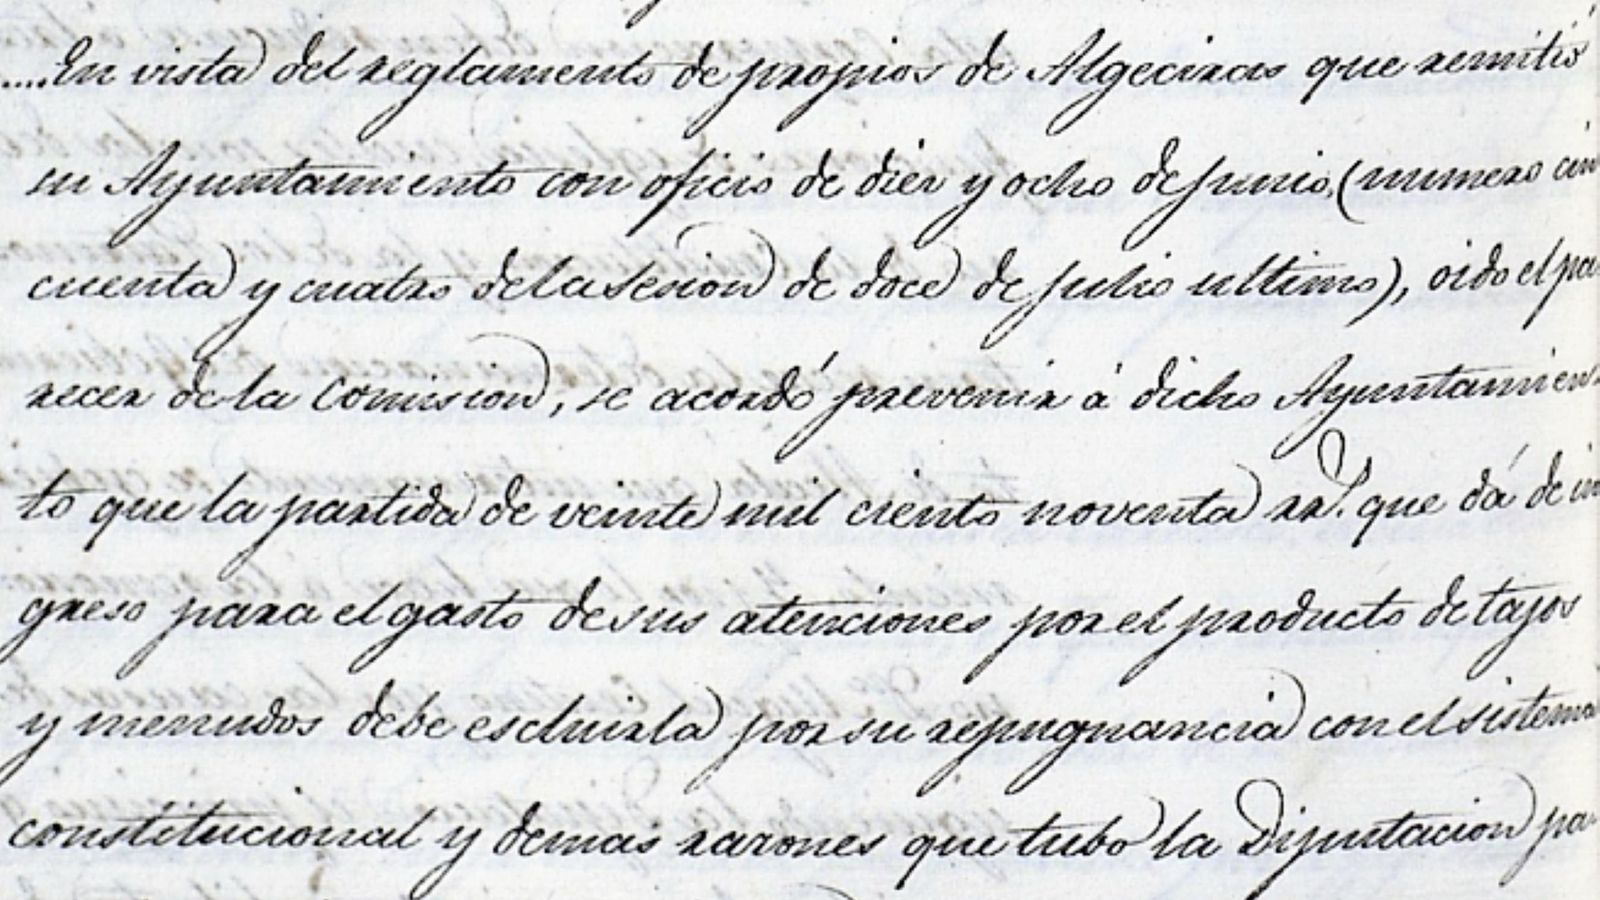 ....En vista del reglamento de propios de Algeciras que remitió
su Ayuntamiento con oficio de diez y ocho de Junio, (numero cin
cuenta y cuatro de la sesion de doce de Julio ultimo), oido el pa
recer de la Comision, se acordó prevenir á dicho Ayuntamien
to que la partida de veinte mil ciento noventa rr.^s que dá de in
greso para el gasto de sus atenciones por el producto de tajos
y menudos debe escluirla por su repugnancia con el sistema
constitucional y demas razones que tubo la Diputacion pa